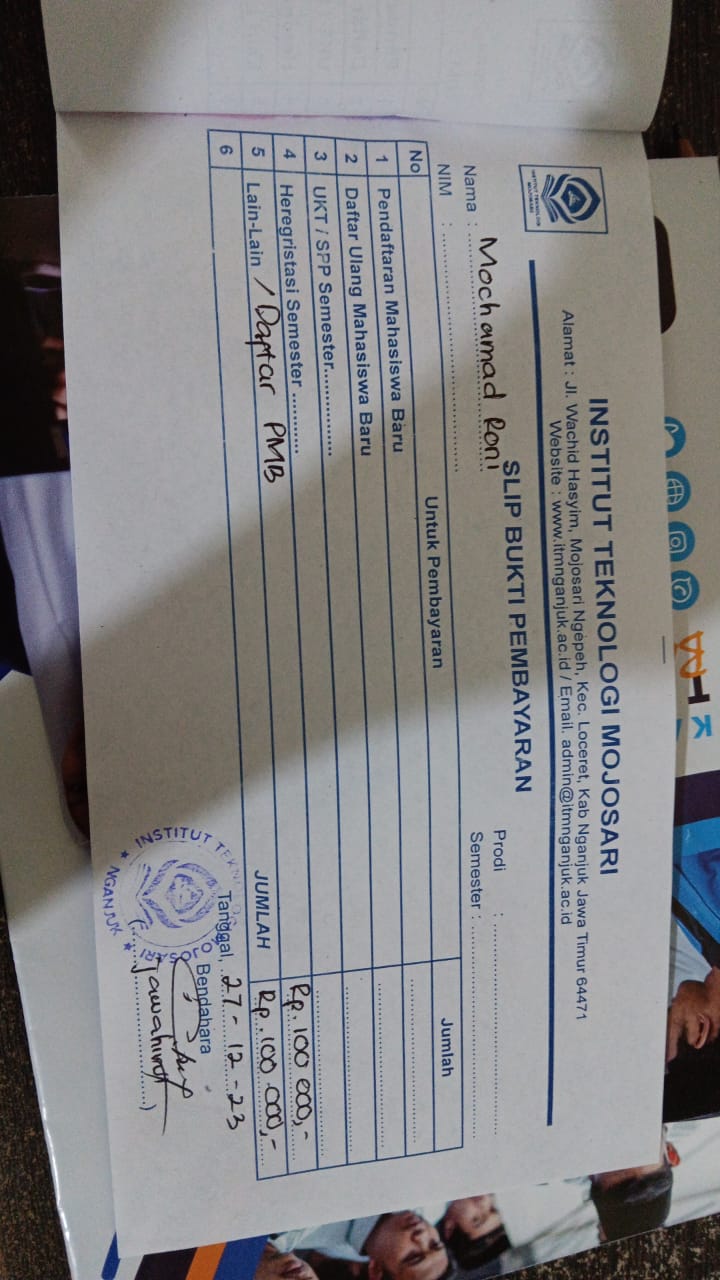 INSTITUT TEKNOLOGI MOJOSARI
INSTITUT TEKNOLOGI MOJOSARI
Alamat : Jl. Wachid Hasyim, Mojosari Ngepeh, Kec. Loceret, Kab Nganjuk Jawa Timur 64471
Website : www.itmnganjuk.ac.id / Email. admin@itmnganjuk.ac.id
SLIP BUKTI PEMBAYARAN
Nama : Mochamad Roni
Prodi :
NIM :
Semester :
No Untuk Pembayaran Jumlah
1 Pendaftaran Mahasiswa Baru
2 Daftar Ulang Mahasiswa Baru
3 UKT / SPP Semester
4 Heregristasi Semester
5 Lain-Lain / Daftar PMB Rp. 100 000,-
6 JUMLAH Rp. 100 000,-
Tanggal, 27 - 12 - 23
Bendahara
INSTITUT TEKNOLOGI MOJOSARI
NGANJUK